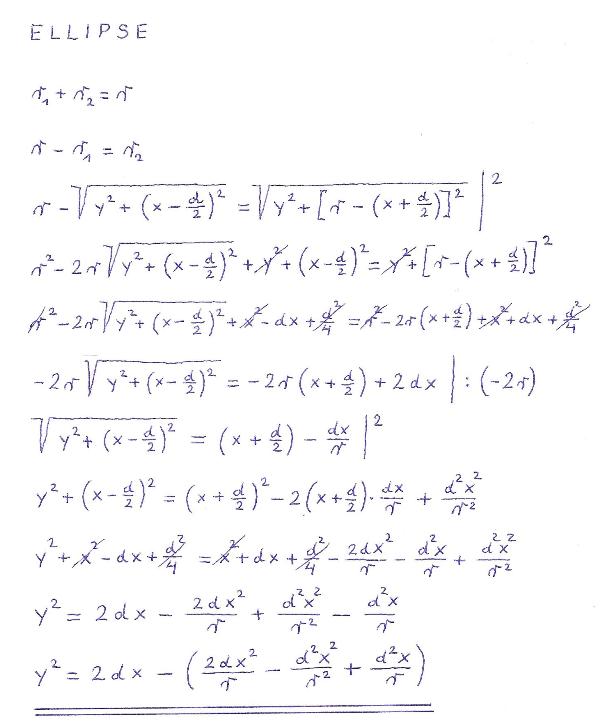 ELLIPSE
r₁ + r₂ = r
r - r₁ = r₂
r - √(y² + (x - d/2)²) = √(y² + [r - (x + d/2)]²) |²
r² - 2r√(y² + (x - d/2)²) + y² + (x - d/2)² = y² + [r - (x + d/2)]²
r² - 2r√(y² + (x - d/2)²) + x² - dx + d²/4 = r² - 2r(x + d/2) + x² + dx + d²/4
-2r√(y² + (x - d/2)²) = -2r(x + d/2) + 2dx | : (-2r)
√(y² + (x - d/2)²) = (x + d/2) - dx/r |²
y² + (x - d/2)² = (x + d/2)² - 2(x + d/2) · dx/r + d²x²/r²
y² + x² - dx + d²/4 = x² + dx + d²/4 - 2dx²/r - d²x/r + d²x²/r²
y² = 2dx - 2dx²/r + d²x²/r² - d²x/r
y² = 2dx - (2dx²/r - d²x²/r² + d²x/r)